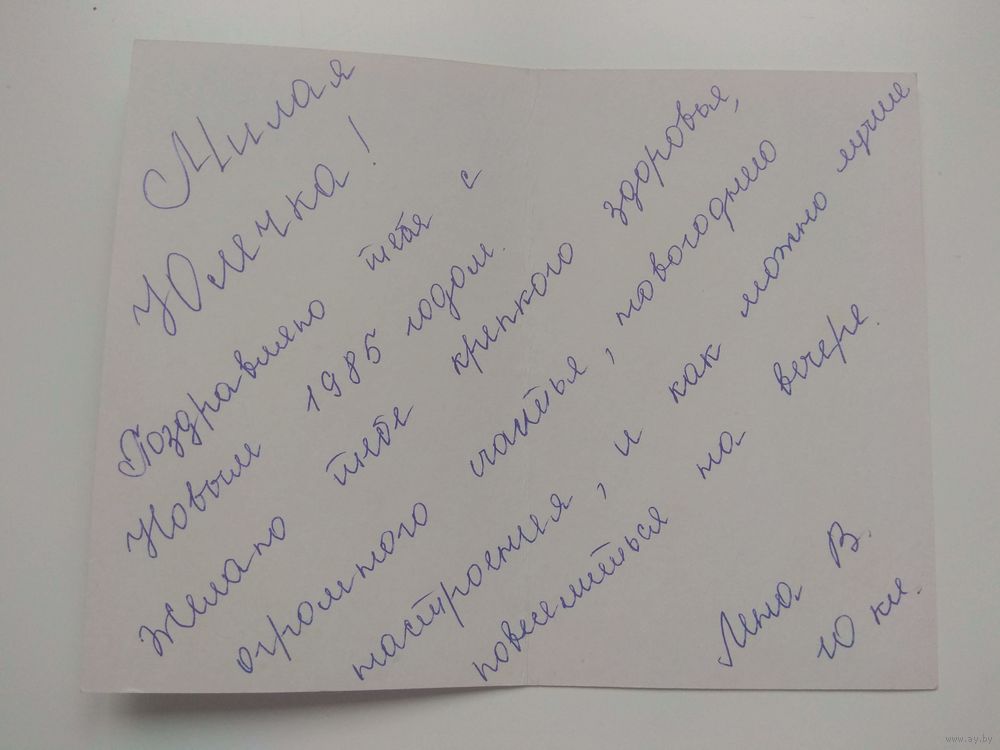 Милая
Юлечка!
Поздравляю тебя с
Новым 1985 годом.
Желаю тебе крепкого здоровья,
огромного счастья, новогоднего
настроения, и как можно лучше
повеселиться на вечере.
Лена В.
10 кл.
www.ay.by